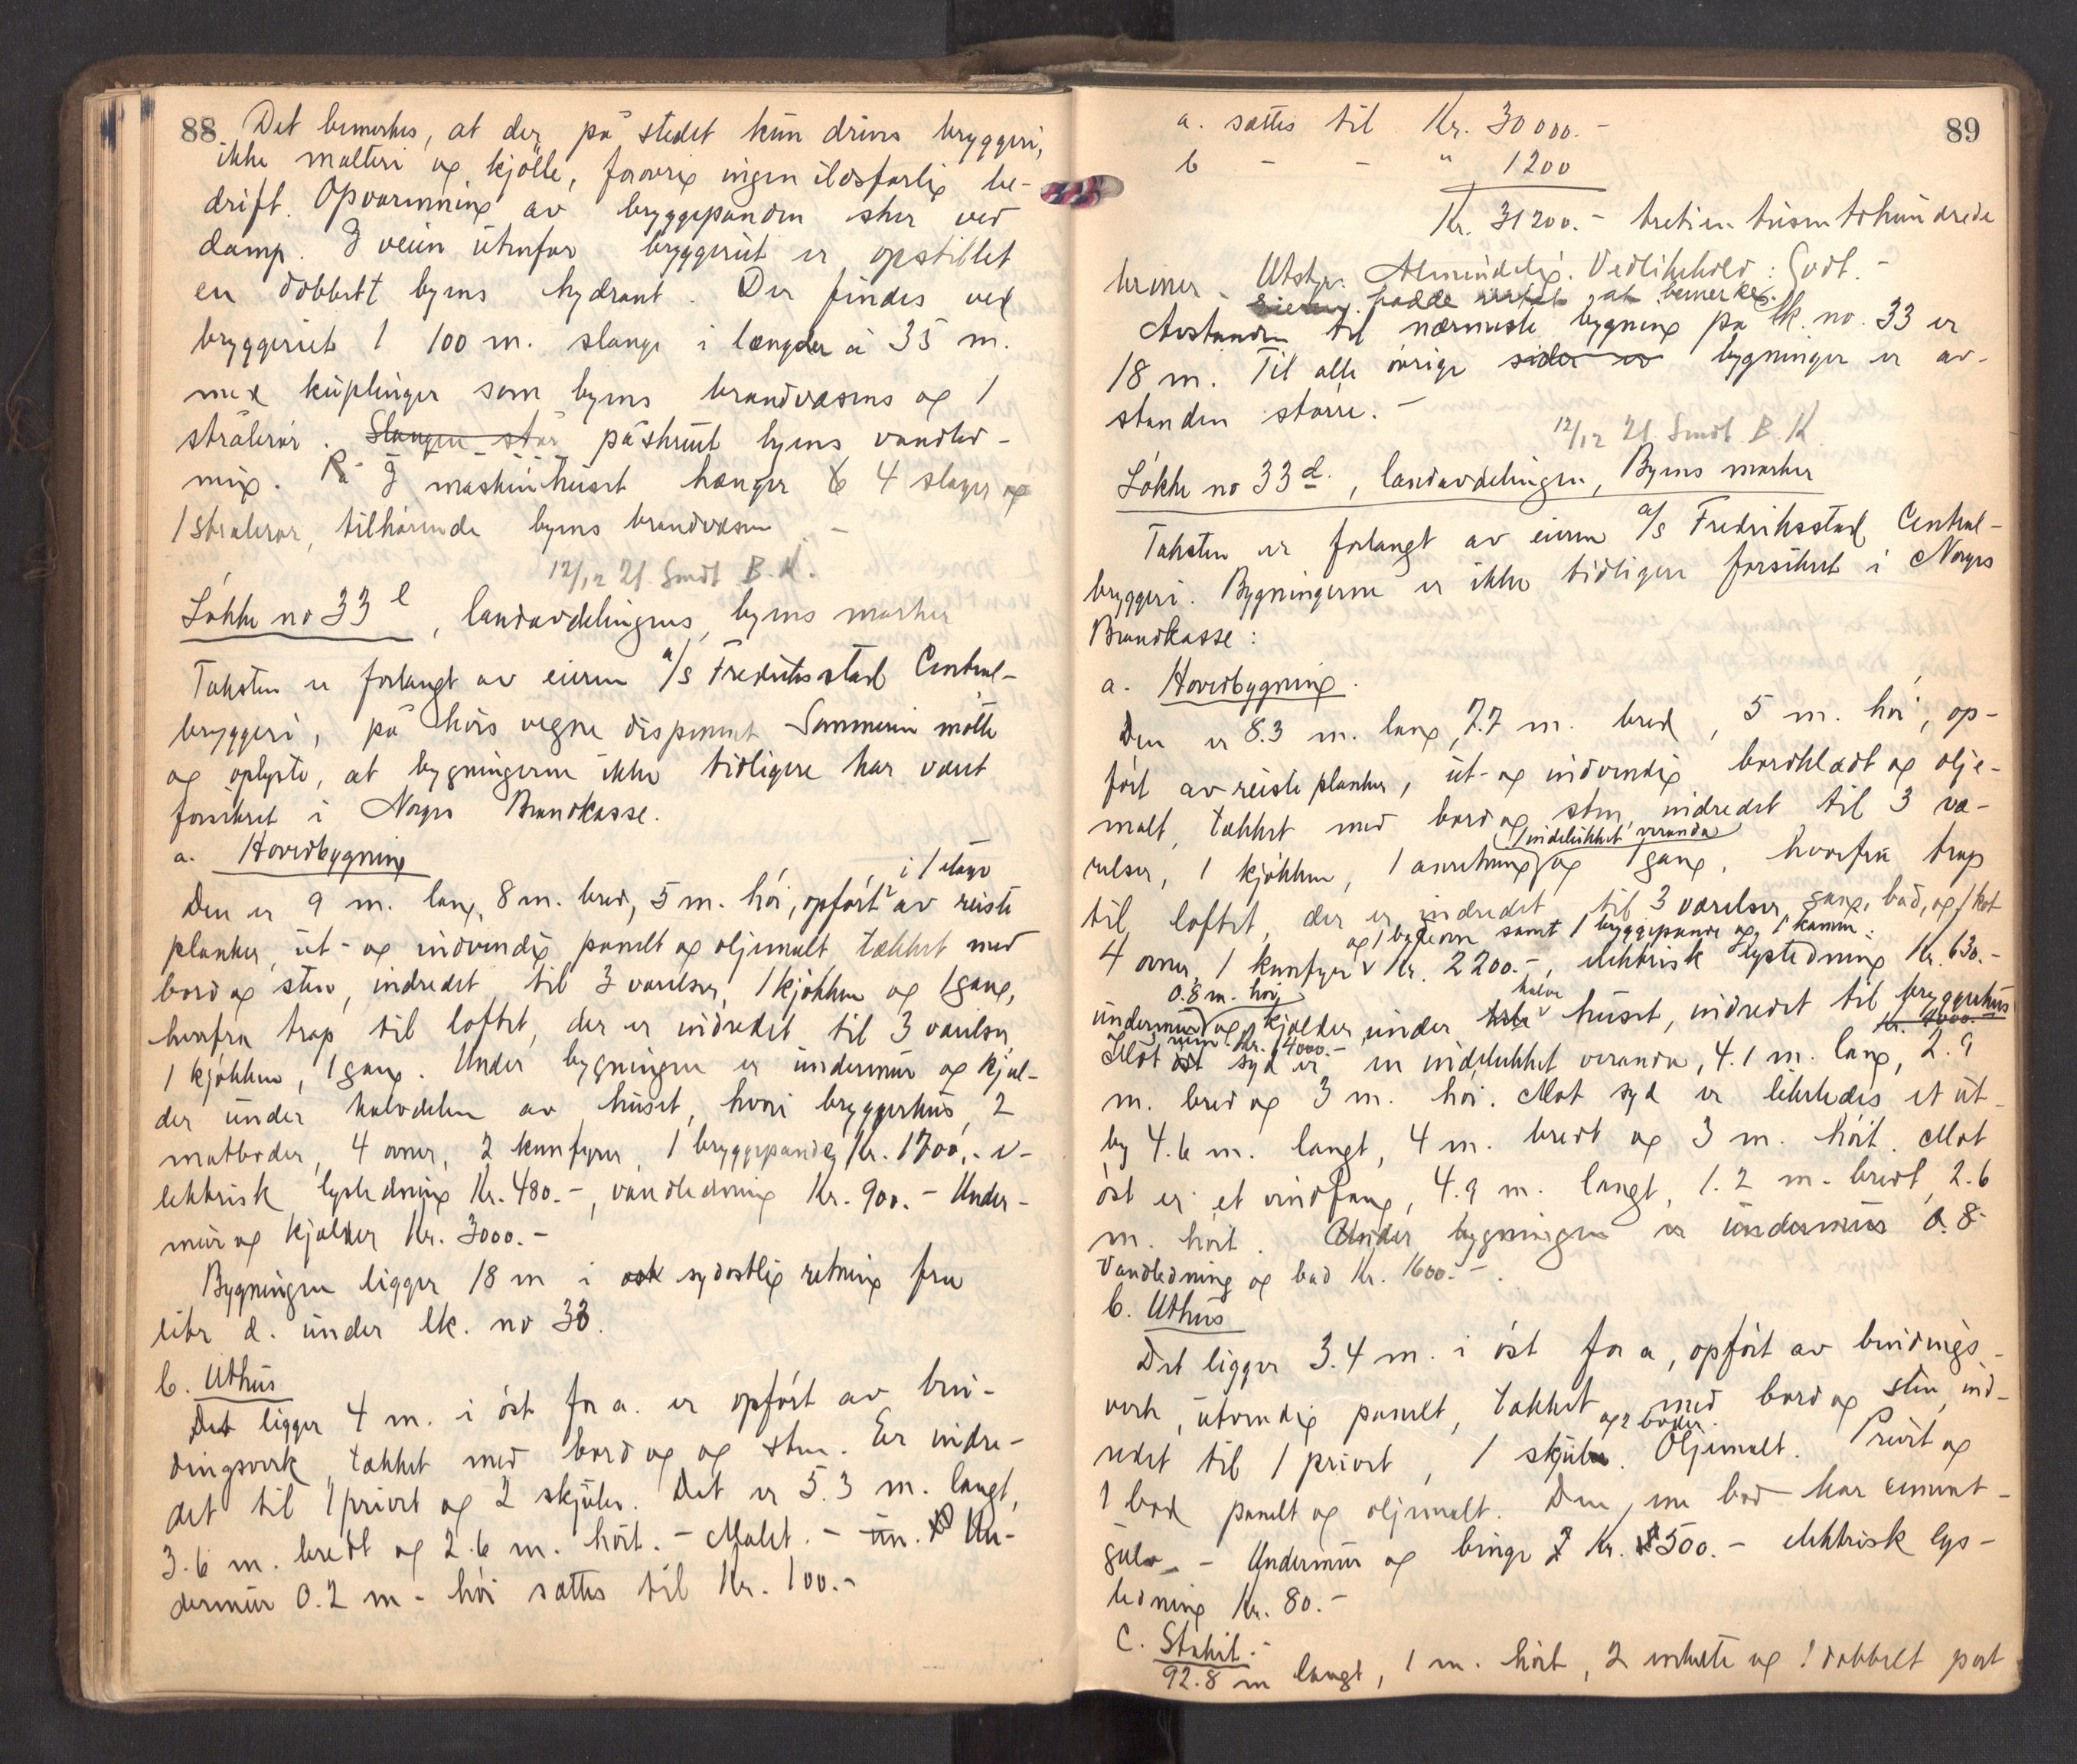 88 Det bemerkes, at der på stedet kun drives bryggeri,
ikke malteri og kjølle, forøvrig ingen ildsfarlig be-
drift. Opvarmning av bryggepanden sker ved
damp. I veien utenfor bryggeriet er opstillet
en dobbelt byens hydrant. Der findes ved
bryggeriet 1 100 m. slange i længder à 35 m.
med kuplinger som byens brandvæsens og 1
strålerør. Slangen står påskruet byens vandled-
ning. På I maskinhuset hænger 6 4 slager og
1 strålerør, tilhørende byens brandvæsen. -
12/12 21. Sendt B. K.
Løkke no 33 e, landavdelingens, byens marker
Taksten er forlangt av eieren a/s Fredriksstad Central-
bryggeri, på hvis vegne disponent Sommerin møtte
og oplyste, at bygningerne ikke tidligere har været
forsikret i Norges Brandkasse.
a. Hovedbygning
i 1 etage
Den er 9 m. lang, 8 m. bred, 5 m. høi, opført av reiste
planker, ut- og indvendig panelt og oljemalt tækket med
bord og sten, indredet til 3 værelser, 1 kjøkken og 1 gang,
hvorfra trap til loftet, der er indredet til 3 værelser,
1 kjøkken, 1 gang. Under bygningen er undermur og kjæl-
der under halvdelen av huset, hvori bryggerhus, 2
matboder, 4 ovner, 2 komfyrer, 1 bryggepande, Kr. 1700.- e-
lektrisk lysledning Kr. 480.-, vandledning Kr. 900.- Under-
mur og kjælder Kr. 3000.-
Bygningen ligger 18 m i øst sydøstlig retning fra
litr d. under lk. no 33.
b. Uthus
Det ligger 4 m. i øst for a. er opført av bin-
dingsverk, tækket med bord og og sten. Er indre-
det til 1 privet og 2 skjuler. Det er 5.3 m. langt,
3.6 m. bredt og 2.6 m. høit. - Malet. - un. Un-
dermur 0.2 m - høi sættes til Kr. 100.-
89
a. sættes til Kr. 30 000.-
b - - " 1200
Kr. 31 200.- trettien tusen tohundrede
kroner. Utstyr: Almindelig. Vedlikehold: Godt. -
hadde intet at bemerke.
Avstanden til nærmeste bygning på lk. no. 33 er
18 m. Til alle øvrige sider er bygninger er av-
standen større. -
12/12 21. Sendt B. K.
Løkke no 33 d., landavdelingen, Byens marker
Taksten er forlangt av eieren a/s Fredriksstad Central-
bryggeri. Bygningerne er ikke tidligere forsikret i Norges
Brandkasse:
a. Hovedbygning.
Den er 8.3 m. lang, 7.7 m. bred, 5 m. høi, op-
ført av reiste planker, ut- og indvendig bordklædt og olje-
malt, tækket med bord og sten, indredet til 3 væ-
1 indelukket veranda
relser, 1 kjøkken, 1 anretning og 1 gang, hvorfra trap
til loftet, der er indredet til 3 værelser, gang, bad, og 1 kot
og 1 badeovn samt 1 bryggepande og 1 kamin:
4 ovner, 1 komfyr Kr. 2200.-, elektrisk lysledning Kr. 630.-
0.8 m. høi halve
undermur og kjælder under hele huset, indredet til bryggerhus
Kr. 4000.- Kr. 4000.-
Mot øst syd er en indelukket veranda, 4.1 m. lang, 2.9
m. bred og 3 m. høi. Mot syd er likeledes et ut-
by 4.6 m. langt, 4 m. bredt og 3 m. høit. Mot
øst er et vindfang, 4.9 m. langt, 1.2 m. bredt, 2.6
m. høit. Under bygningen er undermur 0.8
Vandledning og bad Kr. 1600.-.
b. Uthus
Det ligger 3.4 m. i øst for a, opført av bindings-
verk, utvendig panelt, tækket med bord og sten, ind-
og 2 boder.
redet til 1 privet, 1 skjul. Oljemalt. Privet og
1 bod panelt og oljemalt. Den ene bod har cement-
gulv. - Undermur og binge Kr. 500.- elektrisk lys-
ledning Kr. 80.-
C. Stakit.-
92.8 m langt, 1 m. høit, 2 enkelte og 1 dobbelt port